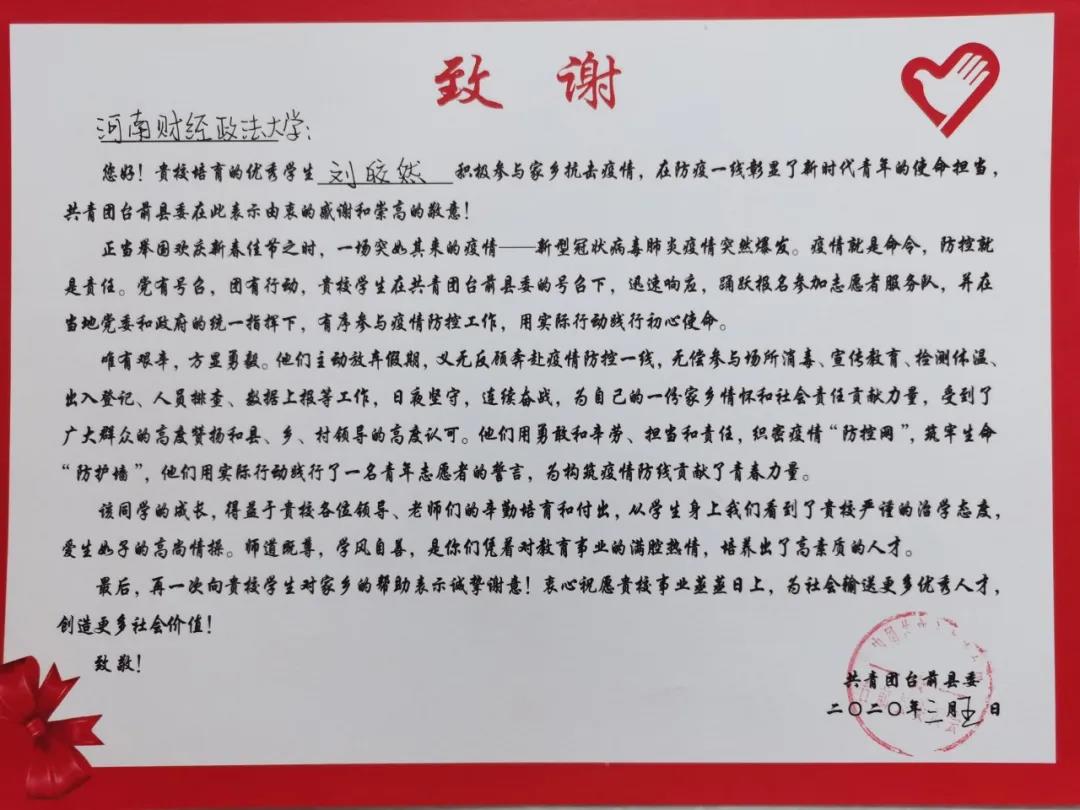 致 谢
河南财经政法大学:
您好！贵校培育的优秀学生 刘皎然 积极参与家乡抗击疫情，在防疫一线彰显了新时代青年的使命担当，
共青团台前县委在此表示由衷的感谢和崇高的敬意！
正当举国欢庆新春佳节之时，一场突如其来的疫情——新型冠状病毒肺炎疫情突然爆发。疫情就是命令，防控就
是责任。党有号召，团有行动，贵校学生在共青团台前县委的号召下，迅速响应，踊跃报名参加志愿者服务队，并在
当地党委和政府的统一指挥下，有序参与疫情防控工作，用实际行动践行初心使命。
唯有艰辛，方显勇毅。他们主动放弃假期，义无反顾奔赴疫情防控一线，无偿参与场所消毒、宣传教育、检测体温、
出入登记、人员排查、数据上报等工作，日夜坚守，连续奋战，为自己的一份家乡情怀和社会责任贡献力量，受到了
广大群众的高度赞扬和县、乡、村领导的高度认可。他们用勇敢和辛劳、担当和责任，织密疫情“防控网”，筑牢生命
“防护墙”，他们用实际行动践行了一名青年志愿者的誓言，为构筑疫情防线贡献了青春力量。
该同学的成长，得益于贵校各位领导、老师们的辛勤培育和付出，从学生身上我们看到了贵校严谨的治学态度，
爱生如子的高尚情操。师道既尊，学风自善，是你们凭着对教育事业的满腔热情，培养出了高素质的人才。
最后，再一次向贵校学生对家乡的帮助表示诚挚谢意！衷心祝愿贵校事业蒸蒸日上，为社会输送更多优秀人才，
创造更多社会价值！
致敬！
共青团台前县委
二〇二〇年三月 日